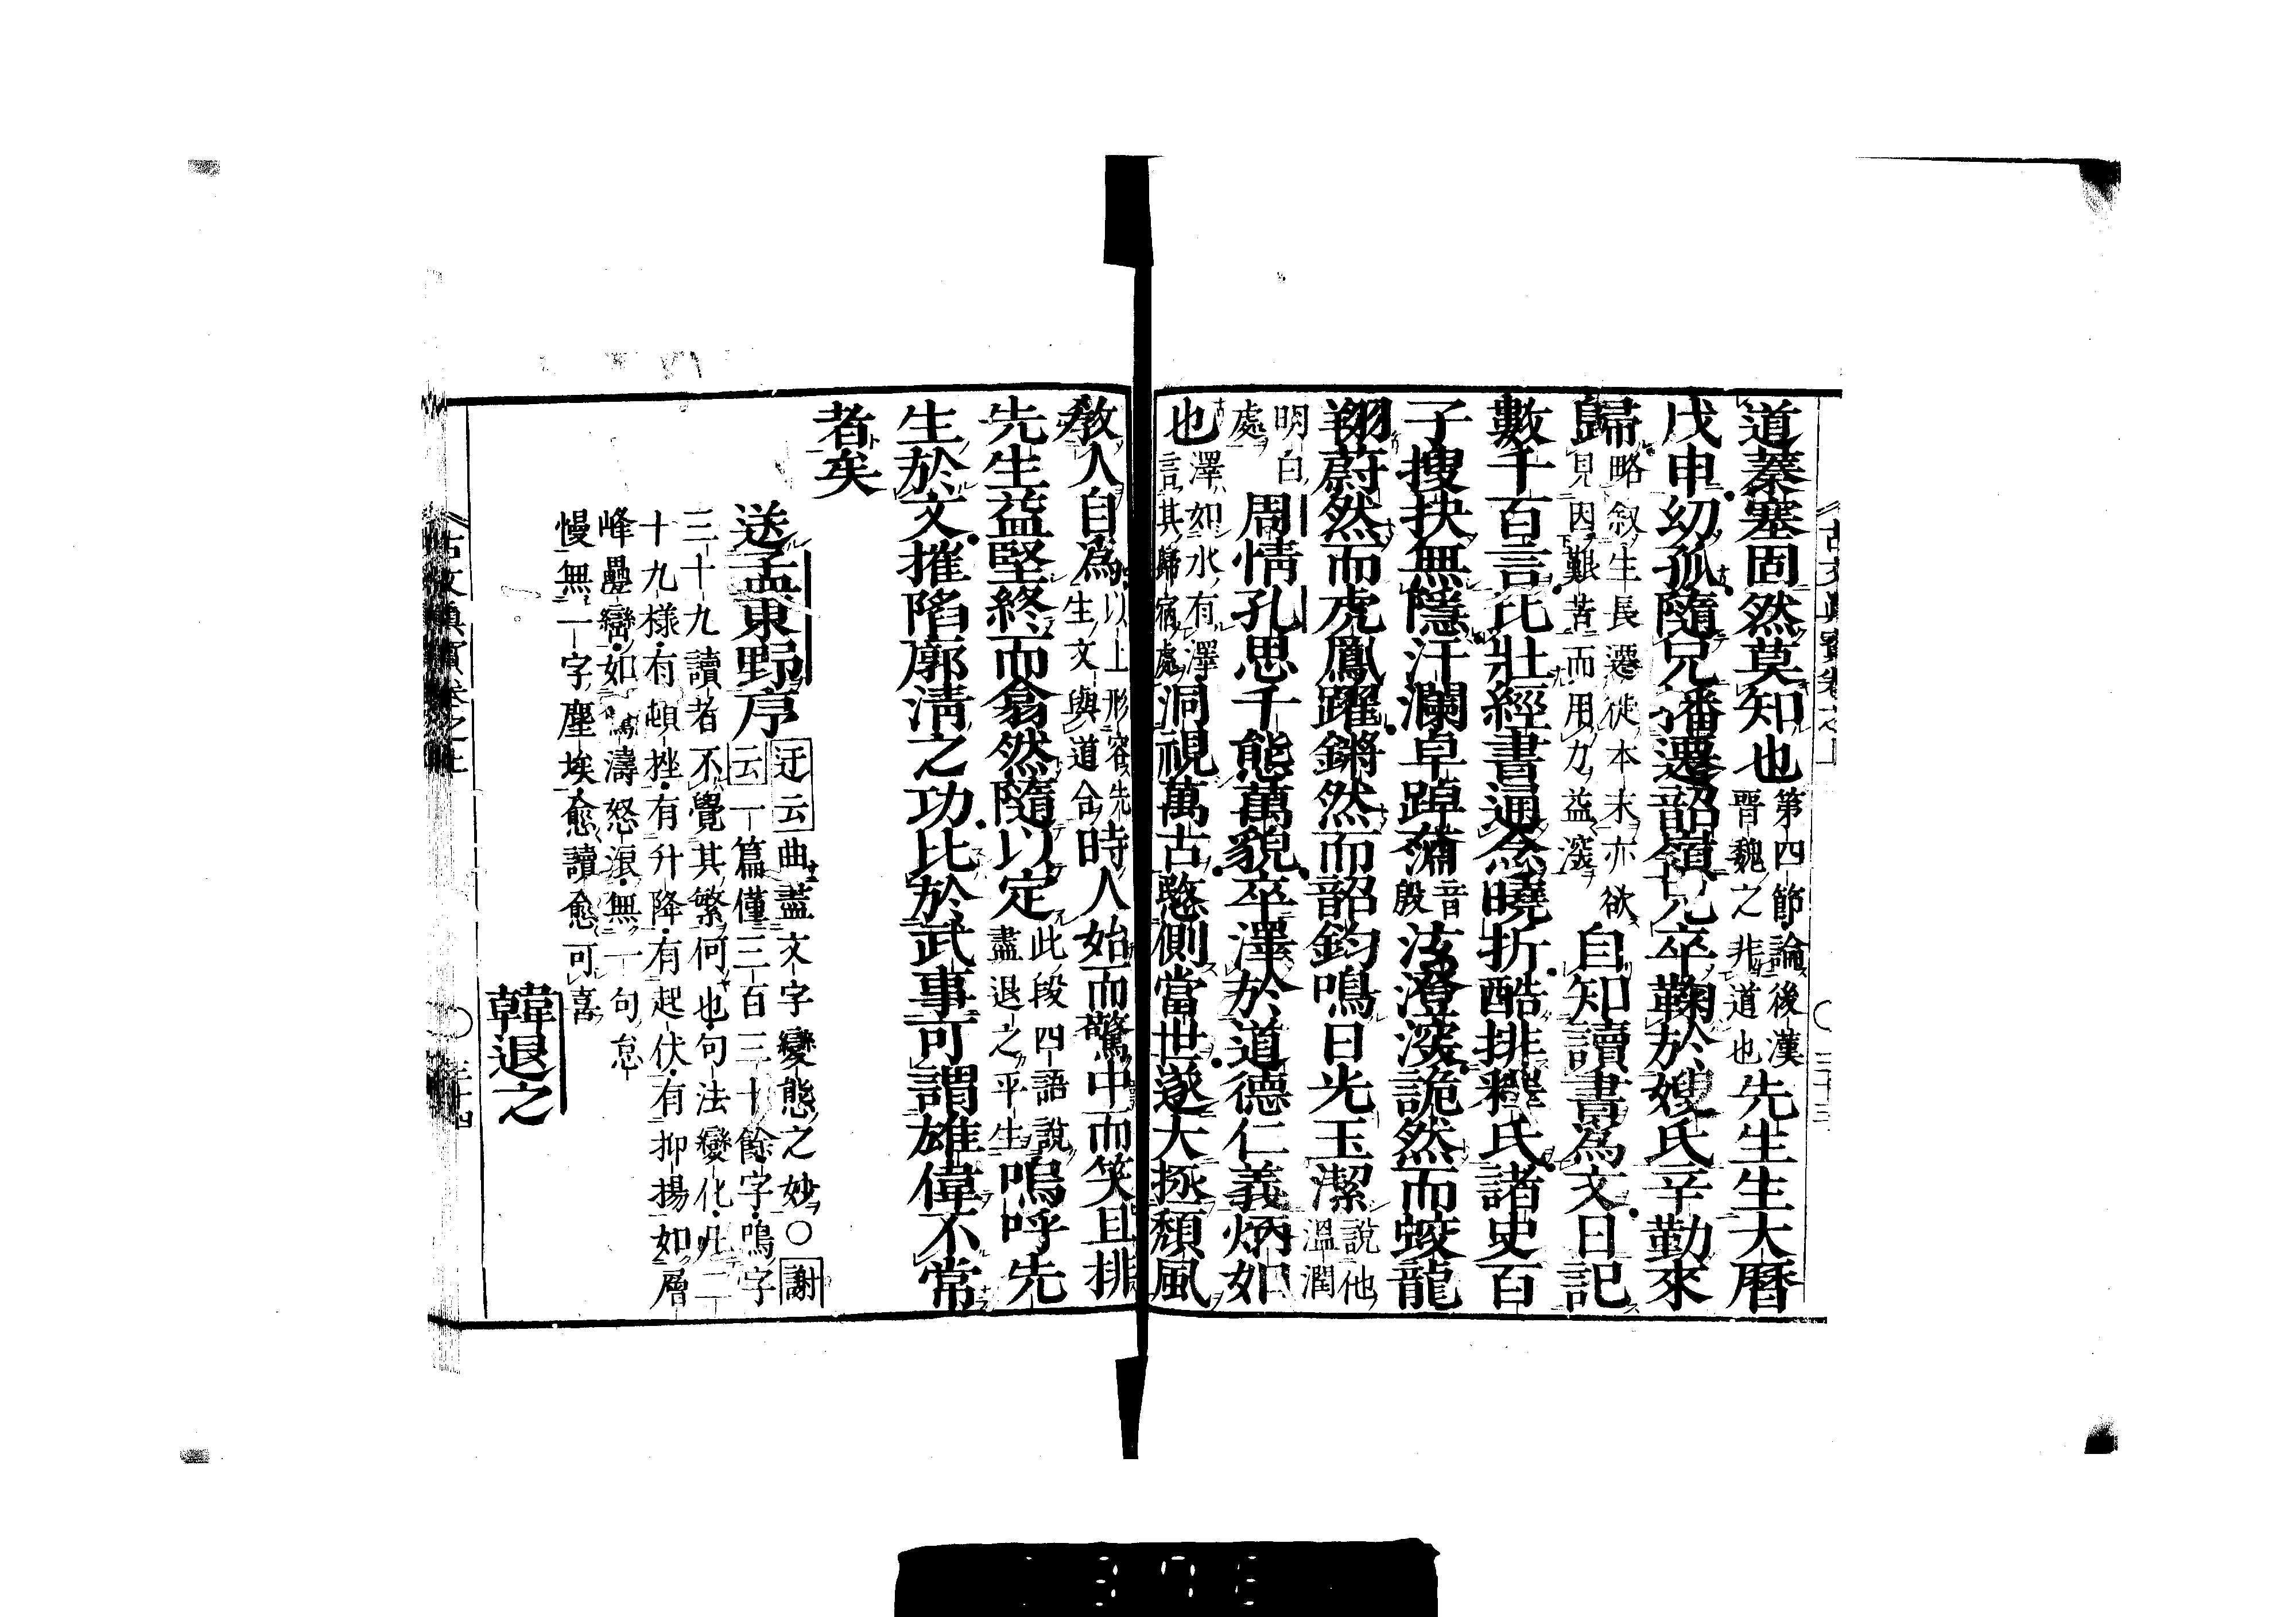 道蓁塞固然莫知也第四節論後漢晋魏之非道也先生生大曆
戊申幼孤隨兄播遷韶嶺兄卒鞠於嫂氏辛勤來
歸略叙生長遷徙本末亦欲見因艱苦而用力益深自知讀書為文日記
數千百言比壯經書通念曉折酷排釋氏諸史百
子搜抉無隱汗瀾卓踔奫音殷泫澄深詭然而蛟龍
翔蔚然而虎鳳躍鏘然而韶鈞鳴日光玉潔說他溫潤
明白處周情孔思千態萬貌卒澤於道德仁義炳如
也澤如水有澤言其歸宿處洞視萬古愍側當世遂大拯頹風
教人自為以上形容先生文與道合時人始而驚中而笑且排
先生益堅終而翕然隨以定此段四語說盡退之平生嗚呼先
生於文摧陷廓清之功比於武事可謂雄偉不常
者矣
送孟東野序迂云曲盡文字變態之妙○謝云一篇僅三百三十餘字鳴字
三十九讀者不覺其繁何也句法變化凡二
十九樣有頓挫有升降有起伏有抑揚如層
峰疊巒如驚濤怒浪無一句怠
慢無一字塵埃愈讀愈可喜
韓退之
古文真寳卷之上